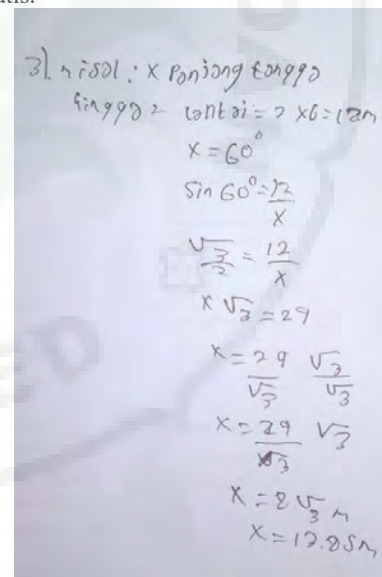 atis.
3). misal : x Panjang tangga
tinggi 2 lantai = 2 x6 = 12m
x = 60°
Sin 60° = 12/x
√3/2 = 12/x
x √3 = 24
x = 24/√3 √3/√3
x = 24/3 √3
x = 8√3 m
x = 13.85m